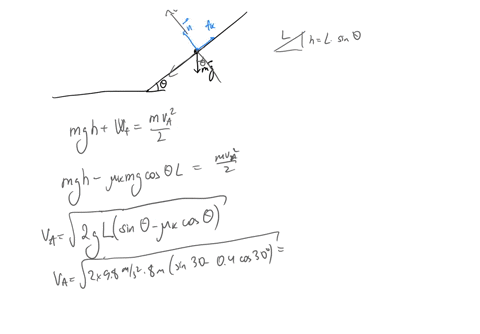 n
fk
L
θ
θ
mg
L
h = L · sin θ
mgh + Wf = mv_A²/2
mgh − μk mg cos θ L = mv_A²/2
V_A = √(2gL(sin θ − μk cos θ))
V_A = √(2×9.8 m/s² · 8m (sin 30 − 0.4 cos 30°)) =